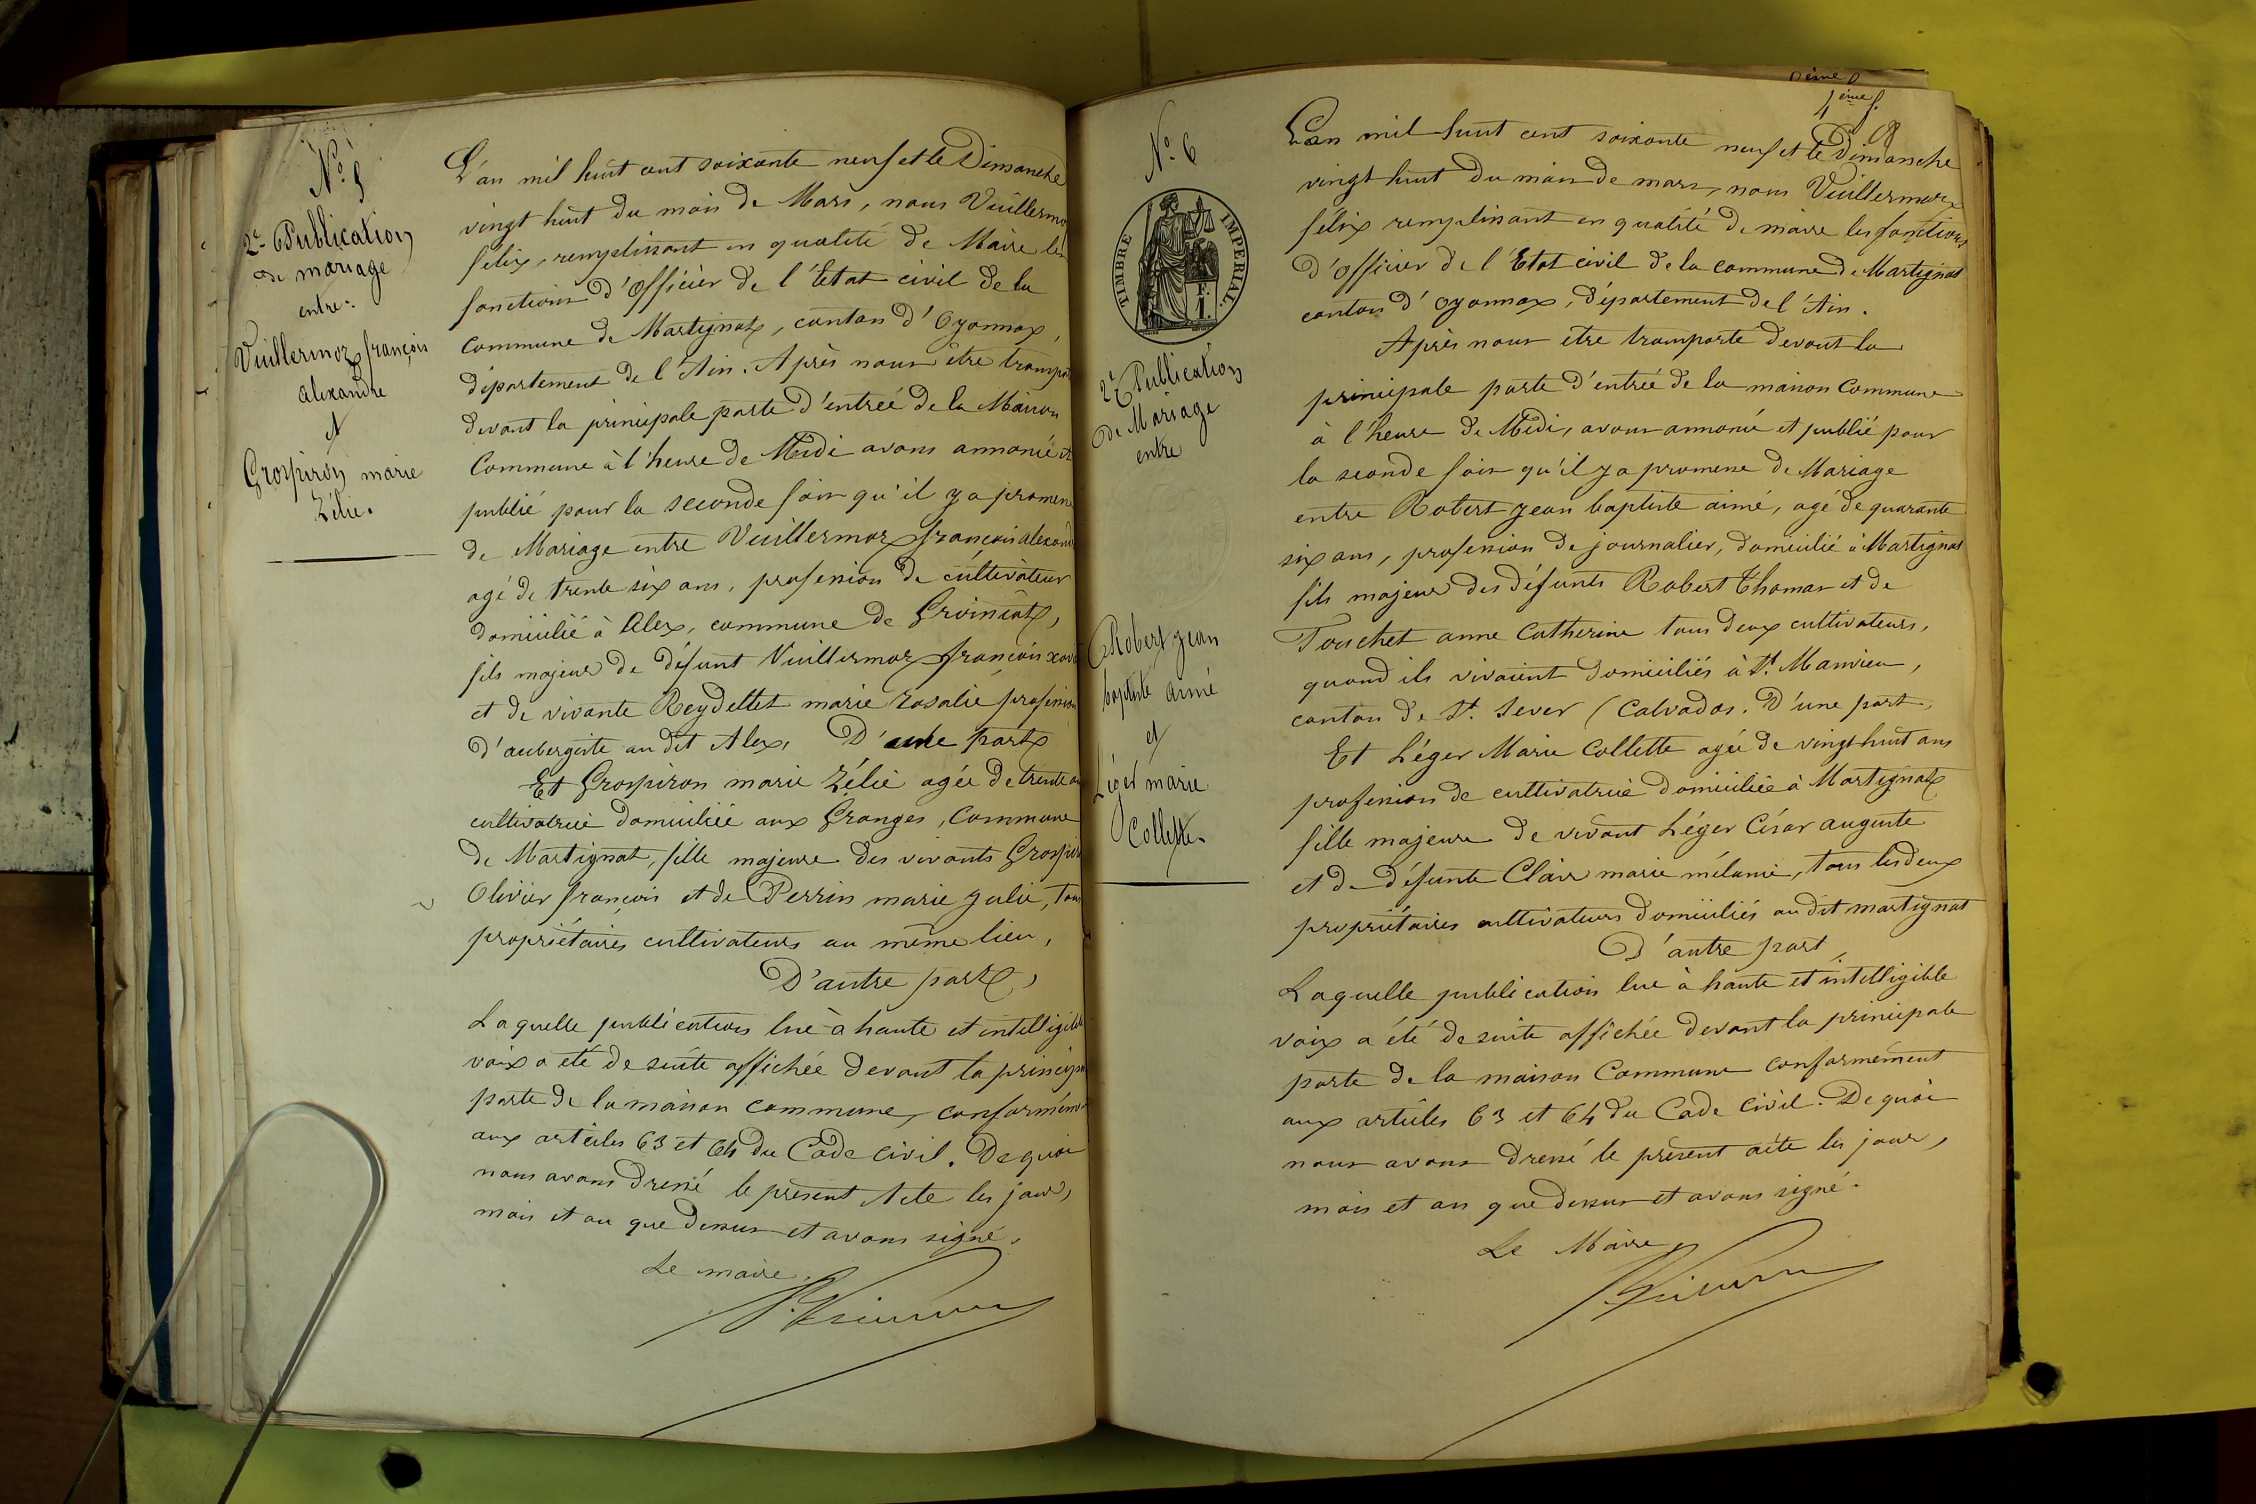 N° 5
2e Publication
de mariage
entre:
Vuillermoz françois
alexandre
et
Grospiron marie
Zélie.
L'an mil huit cent soixante neuf et le Dimanche
vingt huit du mois de Mars, nous Vuillermoz
félix, remplissant en qualité de Maire les
fonctions d'Officier de l'Etat civil de la
commune de Martignat, canton d'Oyonnax,
département de l'Ain. Après nous être transporté
devant la principale porte d'entrée de la Maison
Commune à l'heure de Midi avons annoncé et
publié pour la seconde fois qu'il y a promesse
de Mariage entre Vuillermoz françois alexandre
agé de trente six ans, profession de cultivateur
domicilié à Alex, commune de Groissiat,
fils majeur de défunt Vuillermoz françois
et de vivante Reydellet marie rosalie profession
d'aubergiste au dit Alex, D'une part
Et Grospiron marie Zélie agée de trente ans
cultivatrice domiciliée aux Granges, Commune
de Martignat, fille majeure des vivants Grospiron
Olivier françois et de Perrin marie julie, tous
propriétaires cultivateurs au même lieu,
D'autre part,
Laquelle publication lue à haute et intelligible
voix a été de suite affichée devant la principale
porte de la maison commune, conformément
aux articles 63 et 64 du Code civil. De quoi
nous avons dressé le présent Acte les jour,
mois et an que dessus et avons signé.
Le maire,
N° 6
TIMBRE IMPERIAL.
2e Publication
de Mariage
entre
Robert jean
baptiste aimé
et
Léger marie
Collette.
4ème f.
L'an mil huit cent soixante neuf et le Dimanche
vingt huit du mois de mars, nous Vuillermoz
félix remplissant en qualité de maire les fonctions
d'Officier de l'Etat civil de la commune de Martignat
canton d'Oyonnax, département de l'Ain.
Après nous être transporté devant la
principale porte d'entrée de la maison Commune
à l'heure de Midi, avons annoncé et publié pour
la seconde fois qu'il y a promesse de Mariage
entre Robert jean baptiste aimé, agé de quarante
six ans, profession de journalier, domicilié à Martignat
fils majeur des défunts Robert Thomas et de
Touchet anne Catherine tous deux cultivateurs,
quand ils vivaient domiciliés à St. Manvieu,
canton de St. Sever (Calvados. D'une part,
Et Léger Marie Collette agée de vingt huit ans
profession de cultivatrice domiciliée à Martignat
fille majeure de vivant Léger César auguste
et de défunte Clair marie mélanie, tous les deux
propriétaires cultivateurs domiciliés au dit martignat
D'autre part,
Laquelle publication lue à haute et intelligible
voix a été de suite affichée devant la principale
porte de la maison Commune conformément
aux articles 63 et 64 du Code civil. De quoi
nous avons dressé le présent acte les jour,
mois et an que dessus et avons signé.
Le Maire,